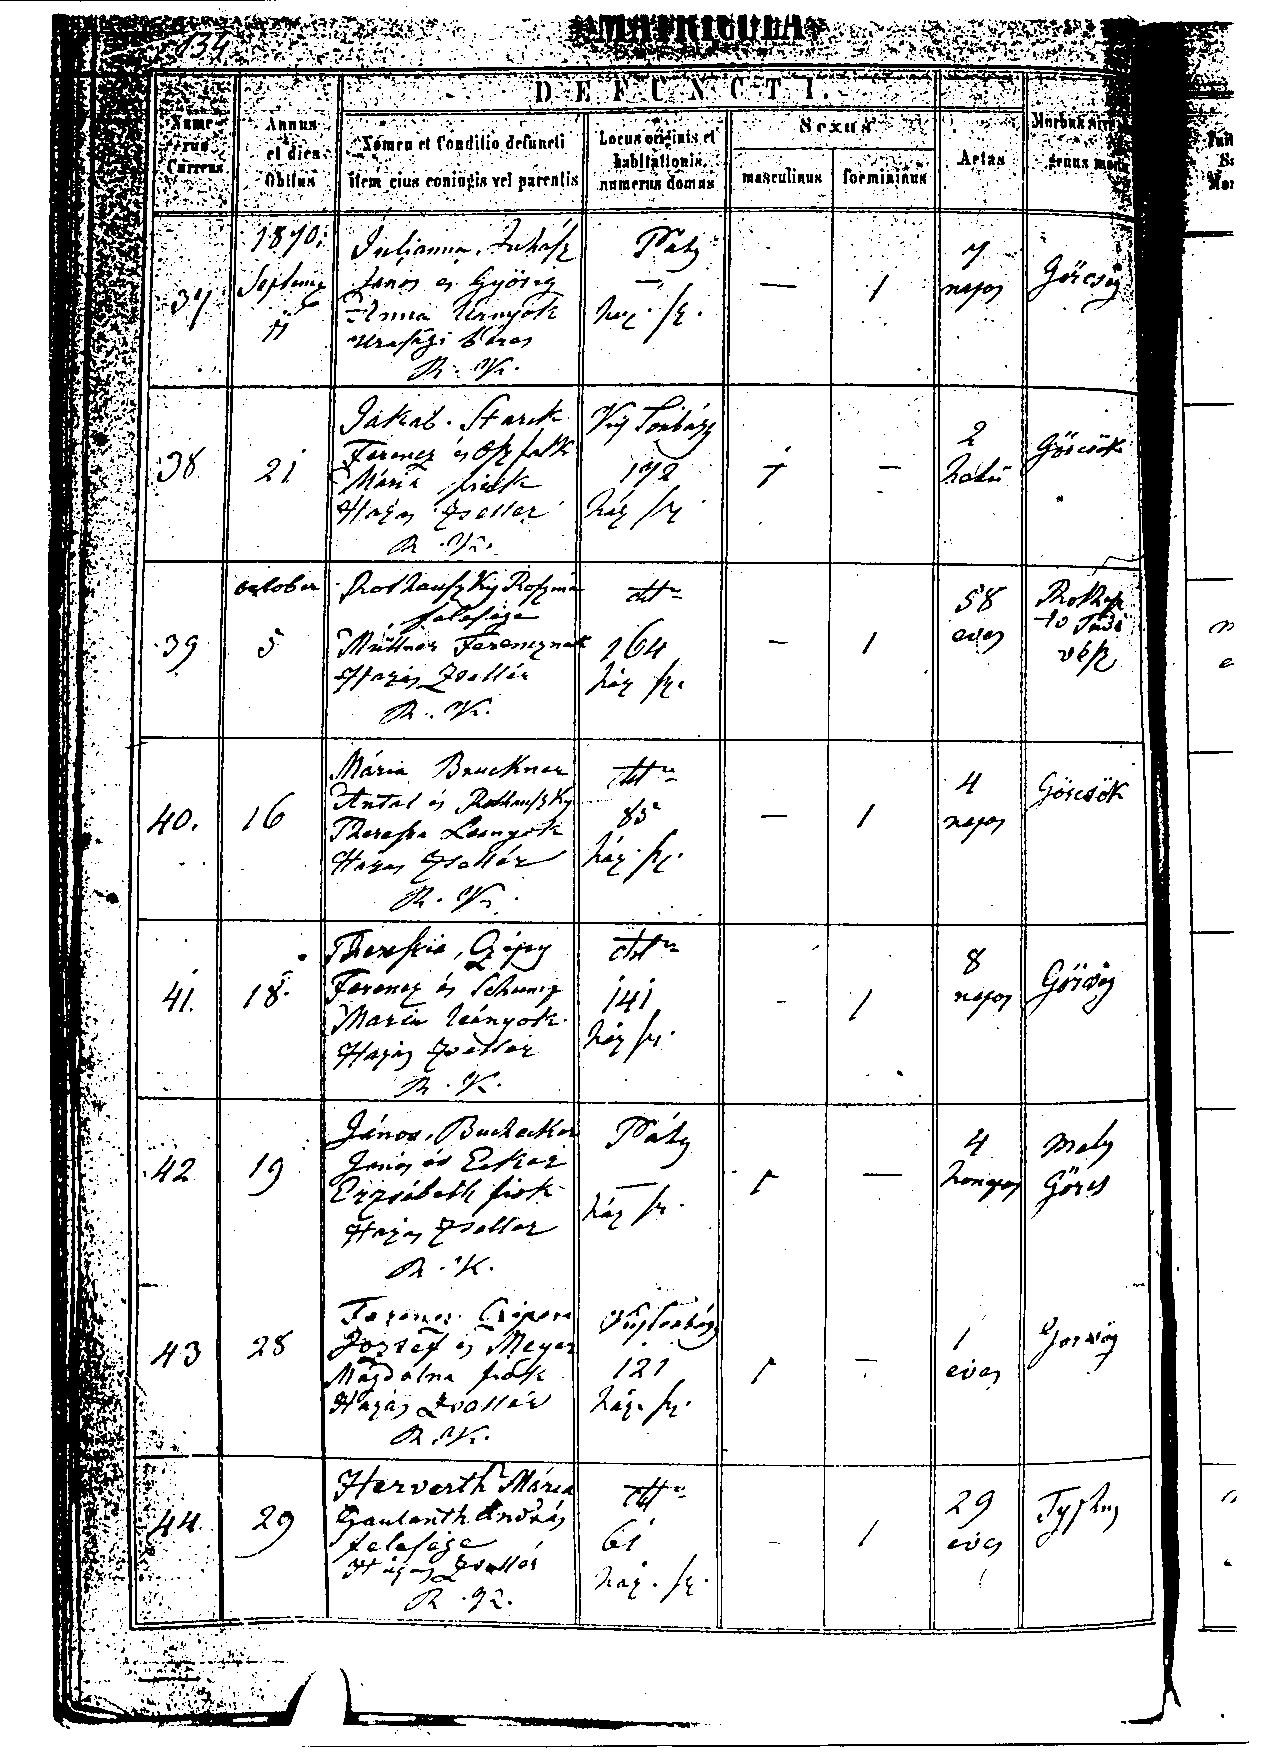 134
MATRICULA
DEFUNCTI.
Nume-
rus
Currens
Annus
et dies
Obitus
Nomen et Conditio defuncti
item eius coniugis vel parentis
Locus originis et
habitationis,
numerus domus
Sexus
masculinus
foemininus
Aetas
Morbus
genus
37
1870.
Septemb
11
Julianna Juhász
János és György
Anna leányok
urasági béres
R. K.
Páty
—
ház sz.
—
1
7
napos
Görcség
38.
21
Jakab Starck
Ferencz és
Mária fiok
Hazas Zsellér
R. K.
Uj Torbágy
172
ház sz.
1
—
2
hetü
Görcsök
39
october
5
Rothauszky
felesége
Müllner Ferencznek
Hazas Zsellér
R. K.
dtto
164
ház sz.
—
1
58
eves
vész
40.
16
Mária Bruckner
Antal és Rothauszky
Theresia Leanyok
Hazas Zsellér
R. K.
dtto
85
ház sz.
—
1
4
napos
Görcsök
41.
18.
Theresia
Ferencz és
Maria leányok
Hazas Zsellér
R. K.
dtto
141
ház sz.
-
1
8
napos
Görcség
42
19
János Buchecker
János és Ecker
Erzsébeth fiok
Hazas Zsellér
R. K.
Páty
—
ház sz.
1
—
4
honapos
Mely
Görcs
43
28
Ferencz
József és Meyer
Magdalna fiok
Hazas Zsellér
R. K.
Uj Torbágy
121
ház sz.
1
—
1
éves
Görcség
44.
29
Herverth Mária
András
felesége
Házas Zsellér
R. K.
dtto
61
ház. sz.
-
1
29
eves
Tyfhus